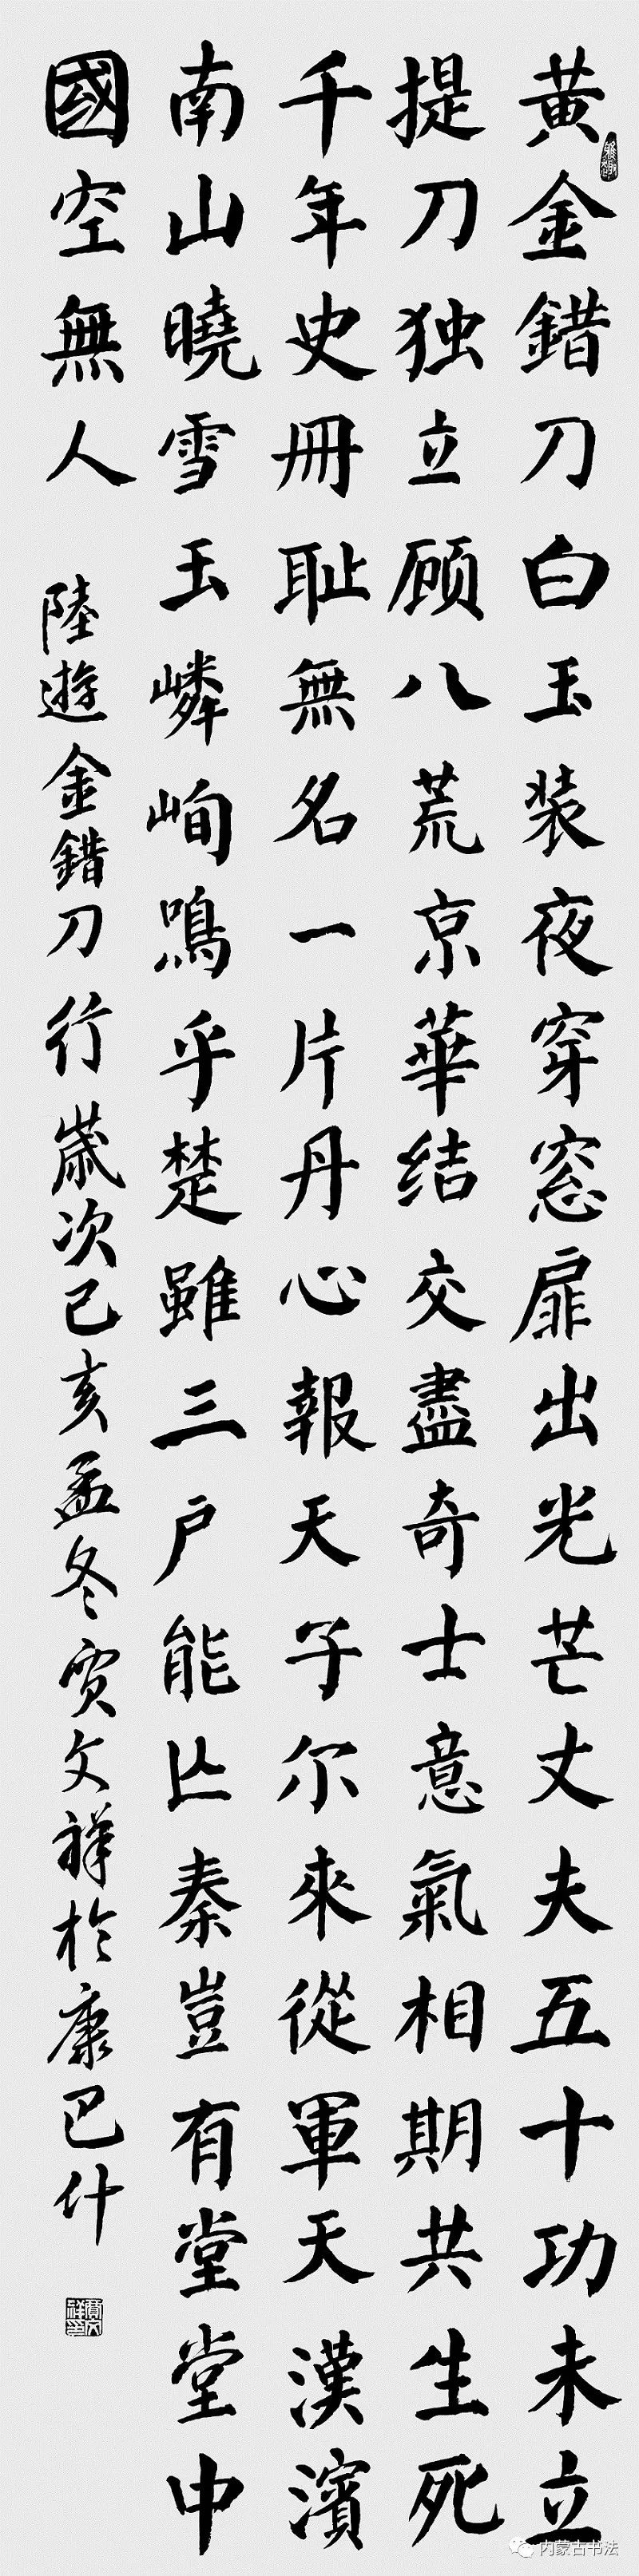 黄金錯刀白玉装夜穿窓扉出光芒丈夫五十功未立
提刀独立顾八荒京華结交盡奇士意氣相期共生死
千年史冊耻無名一片丹心報天子尔來從軍天漢濱
南山曉雪玉嶙峋鳴乎楚雖三户能亾秦豈有堂堂中
國空無人
陸遊金錯刀行歲次己亥孟冬贾文祥於康巴什
内蒙古书法